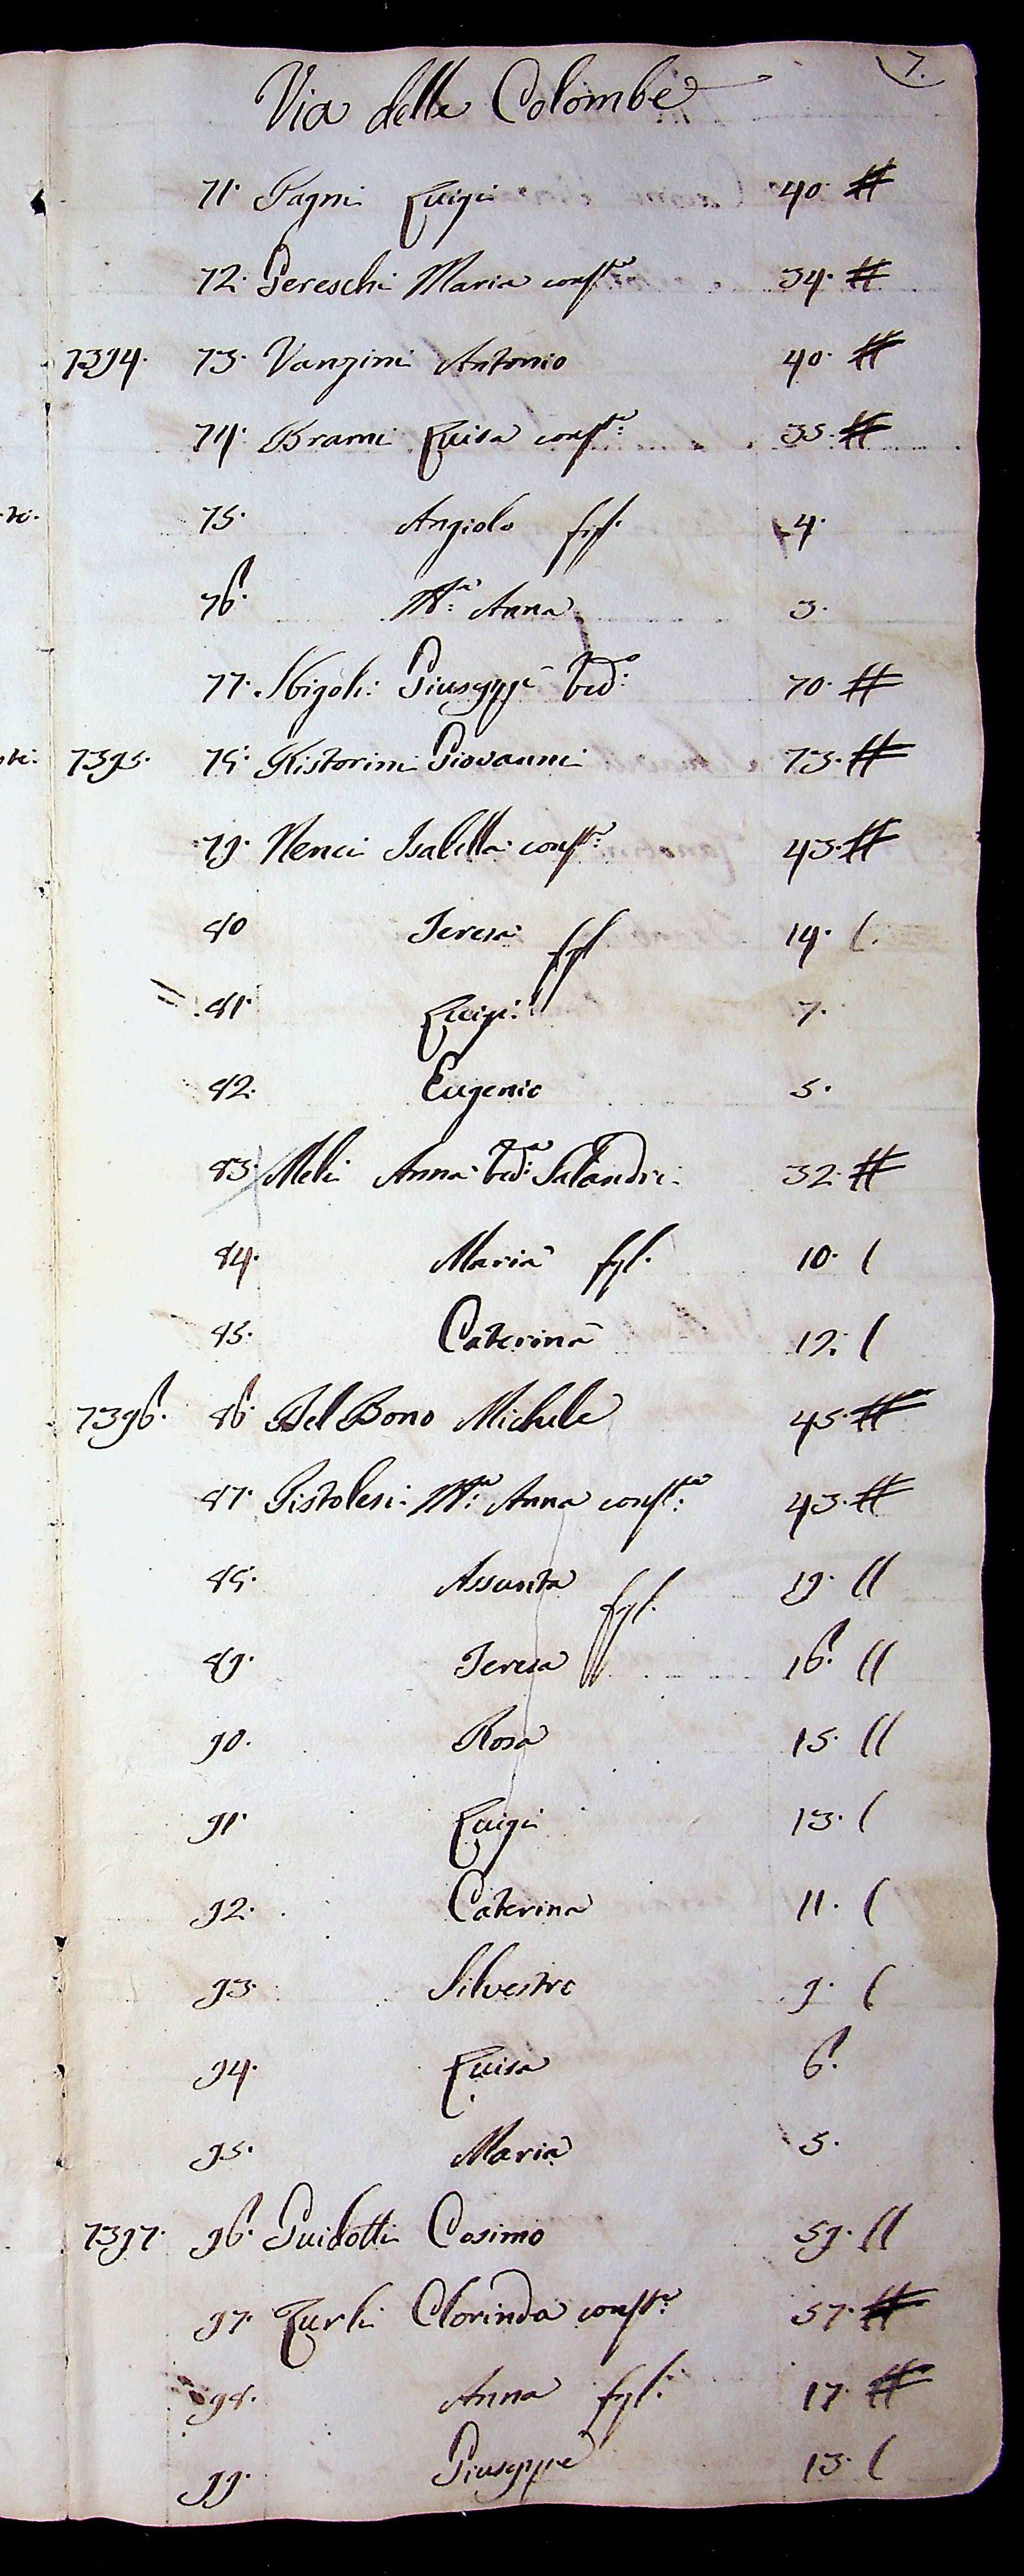 7.
Via delle Colombe
71. Pagni Luigi 40. #
72. Pereschi Maria cons.te 34. #
7394. 73. Vanzini Antonio 40. #
74. Brami Luisa cons.te 35. #
75. Angiolo figl. 4.
76. M.a Anna 3.
77. Sbigoli Giuseppe ved.o 70. #
7395. 78. Ristorini Giovanni 73. #
79. Nenci Isabella cons.te 43. #
80 Teresa figl. 14. (
81. Luigi 7.
82. Eugenio 5.
83. Meli Anna ved.a Salandri 32. #
84. Maria figl. 10. (
85. Caterina 12. (
7396. 86. Del Bono Michele 45. #
87. Pistolesi M.a Anna cons.te 43. #
88. Assunta figl. 19. ((
89. Teresa 16. ((
90. Rosa 15. ((
91. Luigi 13. (
92. Caterina 11. (
93. Silvestro 9. (
94. Luisa 6.
95. Maria 5.
7397. 96. Guidotti Cosimo 59. ((
97. Turli Clorinda cons.te 57. #
98. Anna figl. 17. #
99. Giuseppe 13. (